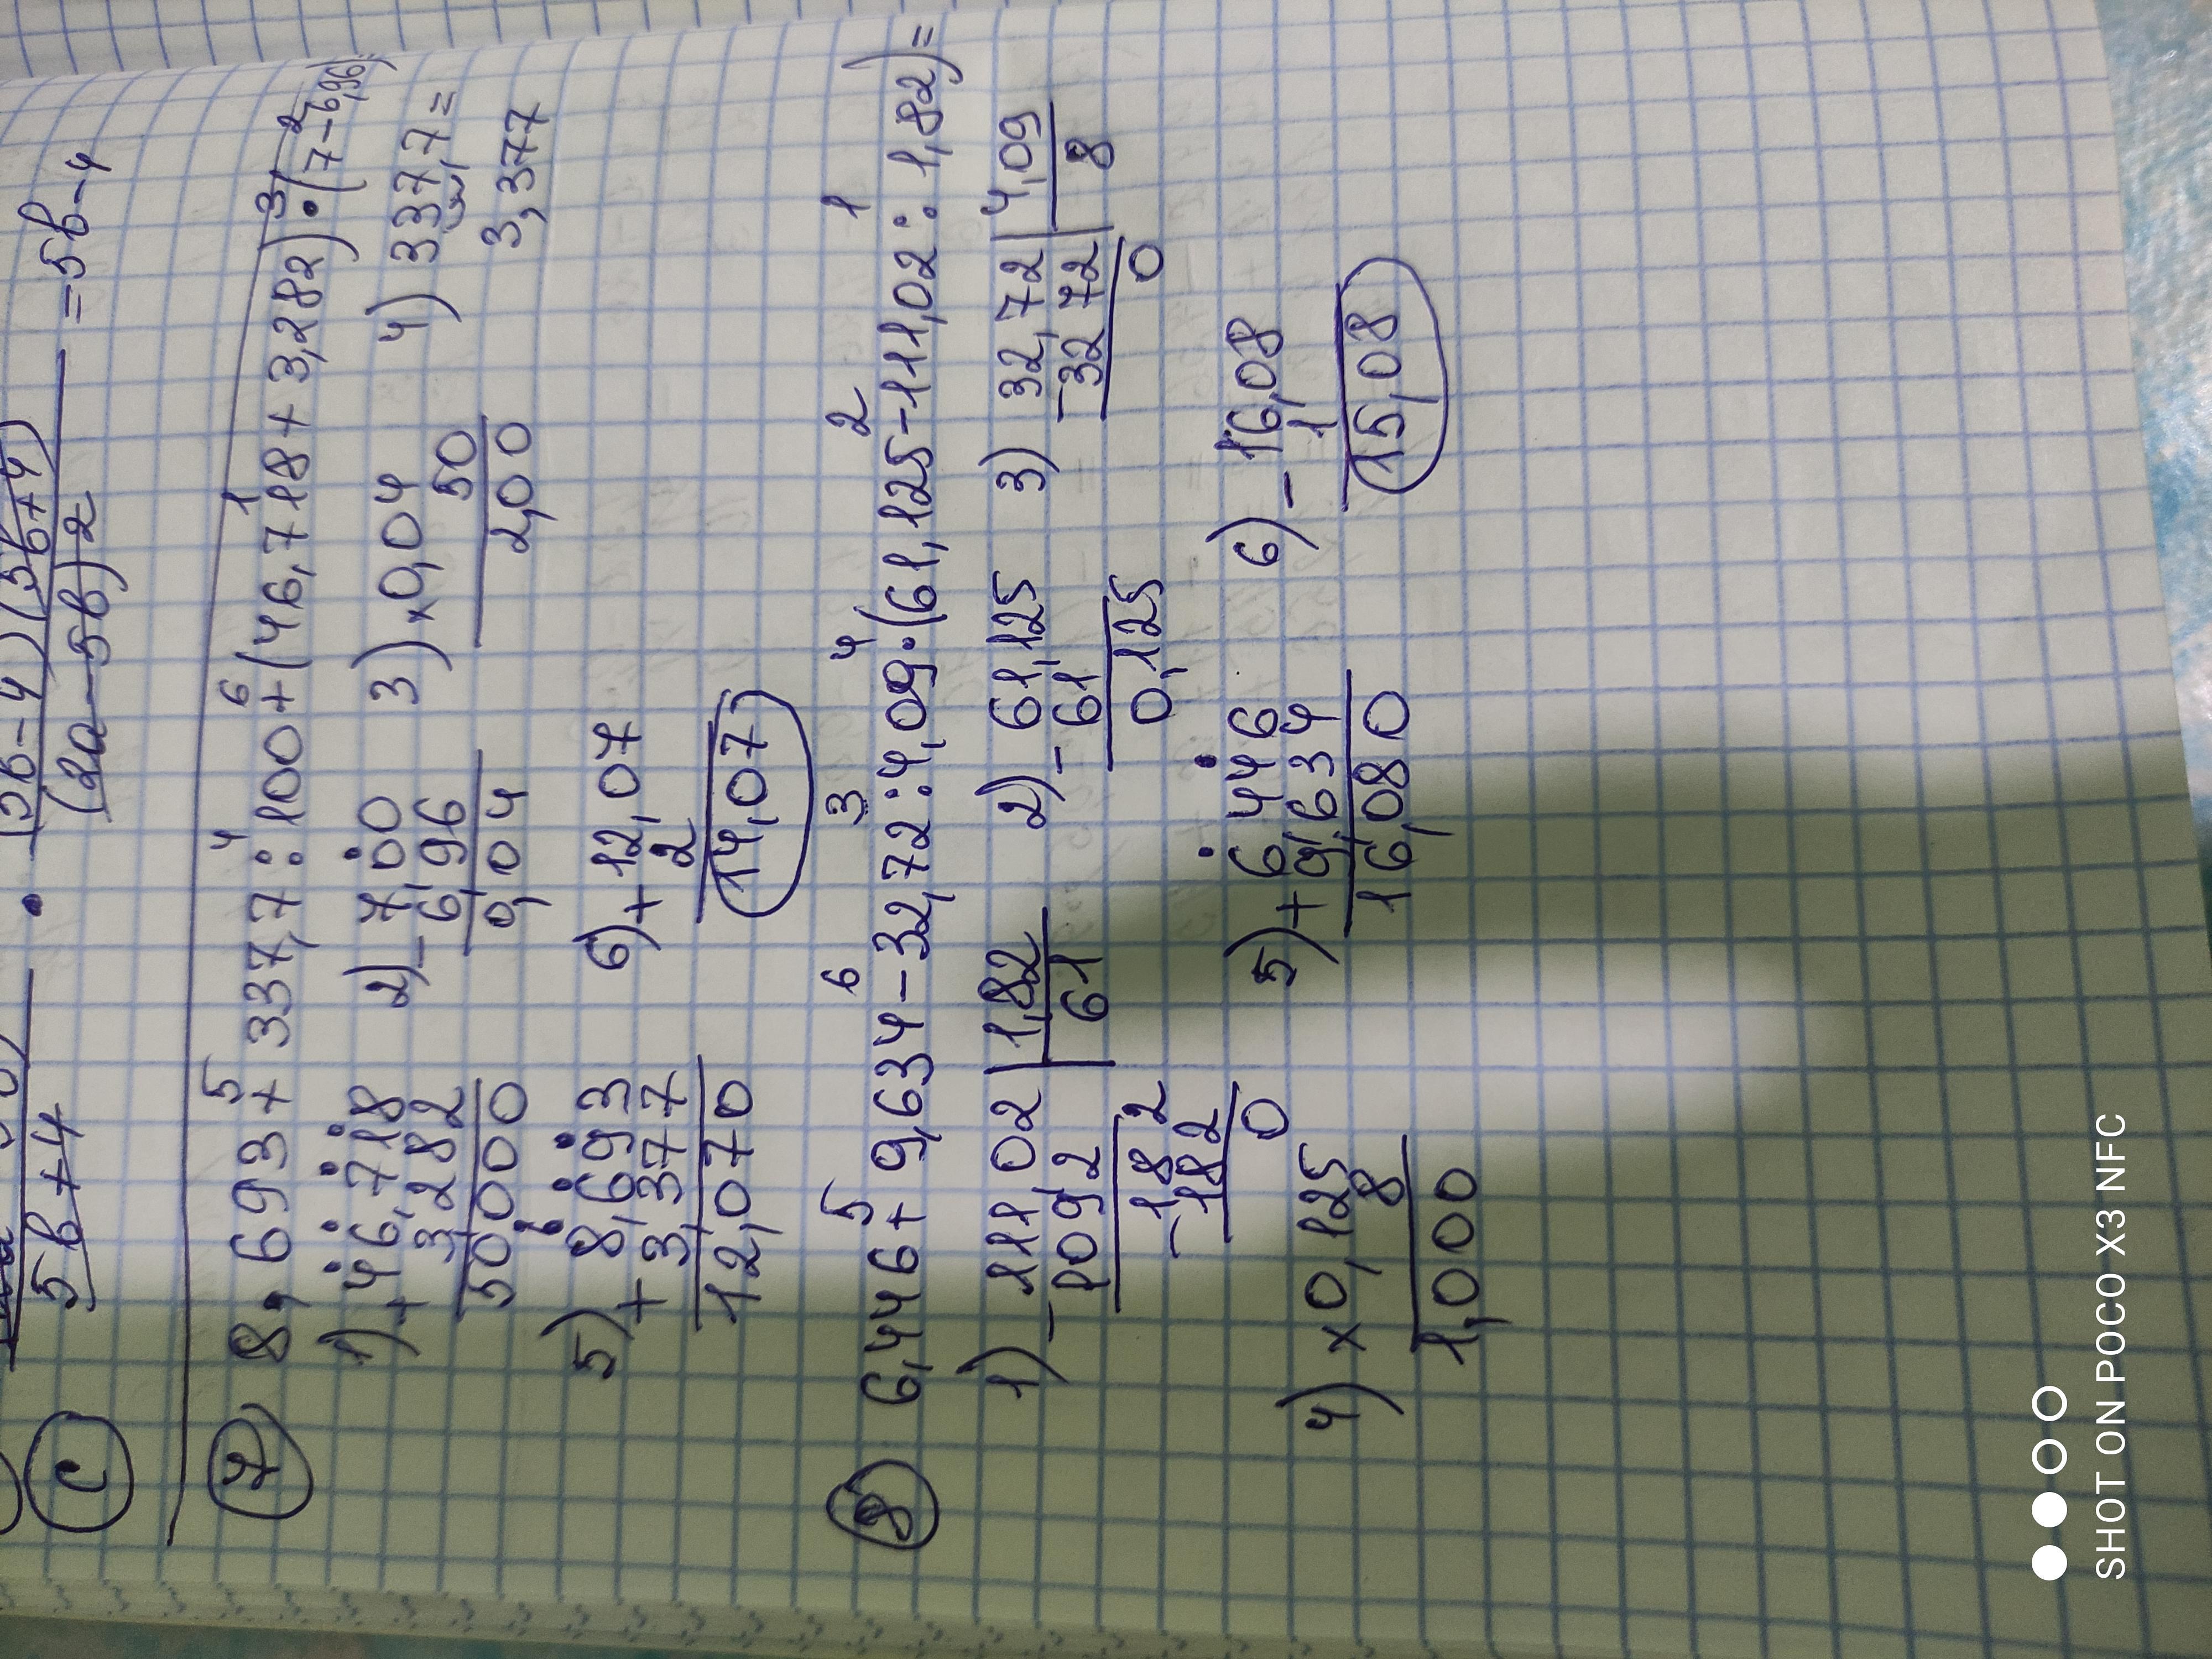 5b+4 • (5b-4)(5b+4) = 5b-4
(2a-5b)2
C
7 8,693+337,7:100+(46,718+3,282)•(7-6,96)
5 4 6 1 3 2
1) + 46,718 2) - 7,00 3) × 0,04 4) 337,7=
3,282 6,96 50 3,377
50000 0,04 2,00
5) + 8,693 6) + 12,07
3,377 2
12,070 14,07
5 6 3 4 2 1
8 6,446+9,634-32,72:4,09•(61,125-111,02:1,82)=
1) - 111 02 | 1,82 2) - 61,125 3) 32,72 | 4,09
109 2 61 61 - 32 72 8
182 0,125 0
- 182
0
4) × 0,125 5) + 6 446 6) - 16,08
8 9,634 1
1,000 16,080 15,08
SHOT ON POCO X3 NFC